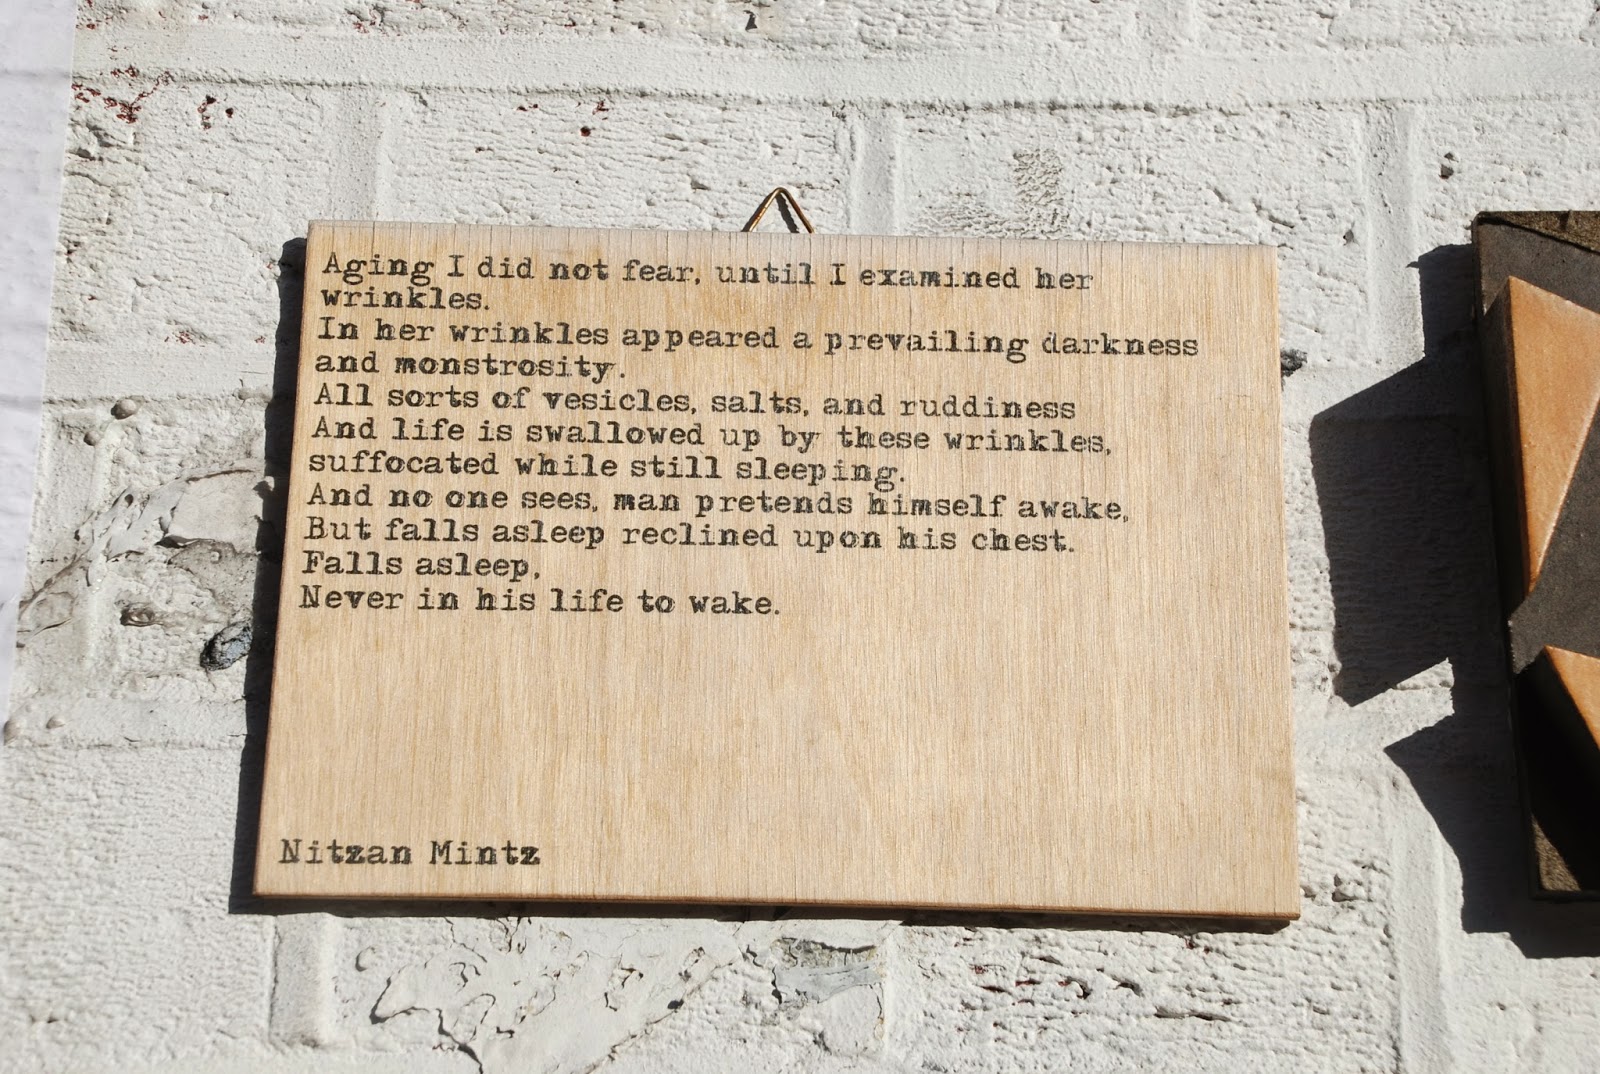 Aging I did not fear, until I examined her
wrinkles.
In her wrinkles appeared a prevailing darkness
and monstrosity.
All sorts of vesicles, salts, and ruddiness
And life is swallowed up by these wrinkles,
suffocated while still sleeping.
And no one sees, man pretends himself awake,
But falls asleep reclined upon his chest.
Falls asleep,
Never in his life to wake.
Nitzan Mintz